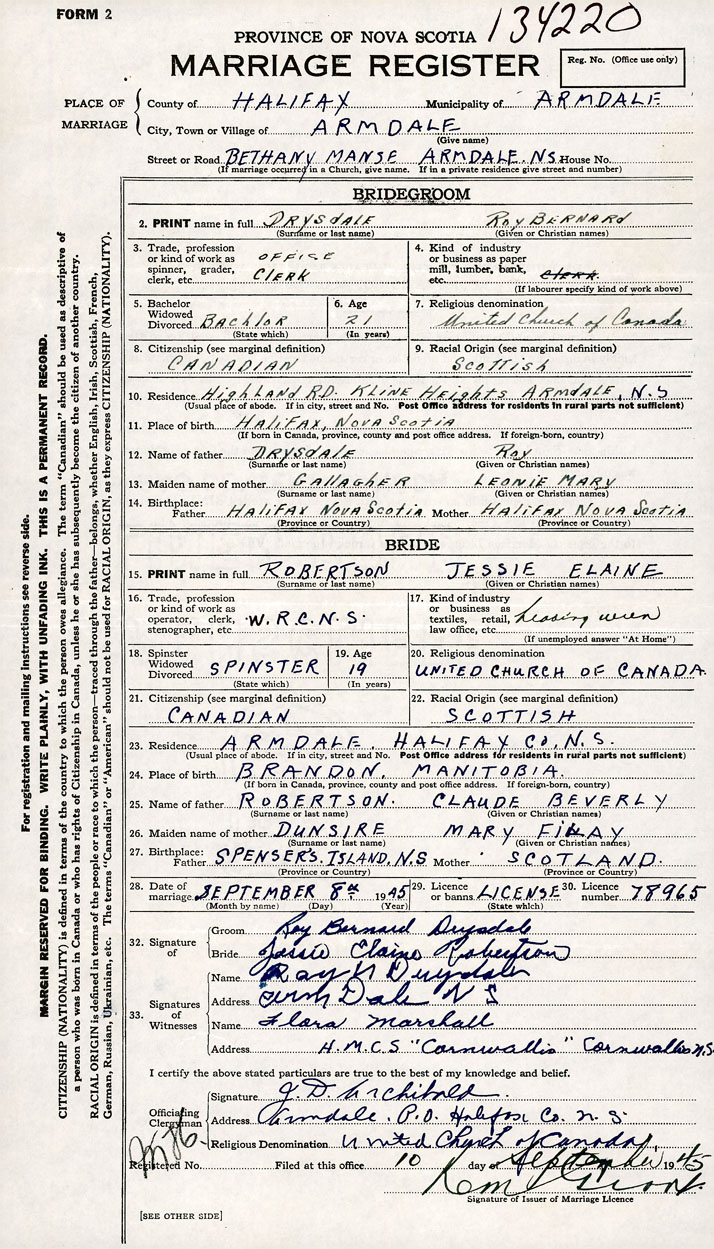 FORM 2
134220
PROVINCE OF NOVA SCOTIA
MARRIAGE REGISTER
Reg. No. (Office use only)
PLACE OF MARRIAGE
County of HALIFAX Municipality of ARMDALE
City, Town or Village of ARMDALE
(Give name)
Street or Road BETHANY MANSE ARMDALE. NS. House No.
(If marriage occurred in a Church, give name. If in a private residence give street and number)
BRIDEGROOM
2. PRINT name in full DRYSDALE ROY BERNARD
(Surname or last name) (Given or Christian names)
3. Trade, profession or kind of work as spinner, grader, clerk, etc. OFFICE CLERK
4. Kind of industry or business as paper mill, lumber, bank, etc. CLERK.
(If labourer specify kind of work above)
5. Bachelor Widowed Divorced BACHLOR
(State which)
6. Age 21
(In years)
7. Religious denomination United Church of Canada
8. Citizenship (see marginal definition) CANADIAN
9. Racial Origin (see marginal definition) SCOTTISH
10. Residence HIGHLAND RD. KLINE HEIGHTS ARMDALE, N.S
(Usual place of abode. If in city, street and No. Post Office address for residents in rural parts not sufficient)
11. Place of birth HALIFAX, NOVA SCOTIA
(If born in Canada, province, county and post office address. If foreign-born, country)
12. Name of father DRYSDALE ROY
(Surname or last name) (Given or Christian names)
13. Maiden name of mother GALLAGHER LEONIE MARY
(Surname or last name) (Given or Christian names)
14. Birthplace: Father HALIFAX NOVA SCOTIA Mother HALIFAX NOVA SCOTIA
(Province or Country) (Province or Country)
BRIDE
15. PRINT name in full ROBERTSON JESSIE ELAINE
(Surname or last name) (Given or Christian names)
16. Trade, profession or kind of work as operator, clerk, stenographer, etc. W.R.C.N.S.
17. Kind of industry or business as textiles, retail, law office, etc.
(If unemployed answer "At Home")
18. Spinster Widowed Divorced SPINSTER
(State which)
19. Age 19
(In years)
20. Religious denomination UNITED CHURCH OF CANADA.
21. Citizenship (see marginal definition) CANADIAN
22. Racial Origin (see marginal definition) SCOTTISH
23. Residence ARMDALE, HALIFAX CO, N.S.
(Usual place of abode. If in city, street and No. Post Office address for residents in rural parts not sufficient)
24. Place of birth BRANDON, MANITOBIA.
(If born in Canada, province, county and post office address. If foreign-born, country)
25. Name of father ROBERTSON. CLAUDE BEVERLY
(Surname or last name) (Given or Christian names)
26. Maiden name of mother DUNSIRE MARY FINLAY
(Surname or last name) (Given or Christian names)
27. Birthplace: Father SPENSER'S ISLAND, N.S Mother SCOTLAND.
(Province or Country) (Province or Country)
28. Date of marriage SEPTEMBER 8th 1945
(Month by name) (Day) (Year)
29. Licence or banns LICENSE
(State which)
30. Licence number 78965
32. Signature of
Groom Roy Bernard Drysdale
Bride Jessie Elaine Robertson
33. Signatures of Witnesses
Name Ray Drysdale
Address Arm Dale N S
Name Flora Marshall
Address H.M.C.S "Cornwallis" Cornwallis N.S.
I certify the above stated particulars are true to the best of my knowledge and belief.
Officiating Clergyman
Signature J. D. Archibald.
Address Armdale. P.O. Halifax Co. N.S.
Religious Denomination United Church of Canada
Registered No. Filed at this office 10 day of September 1945
Signature of Issuer of Marriage Licence
[SEE OTHER SIDE]
For registration and mailing instructions see reverse side.
MARGIN RESERVED FOR BINDING. WRITE PLAINLY, WITH UNFADING INK. THIS IS A PERMANENT RECORD.
CITIZENSHIP (NATIONALITY) is defined in terms of the country to which the person owes allegiance. The term "Canadian" should be used as descriptive of
a person who was born in Canada or who has rights of Citizenship in Canada, unless he or she has subsequently become the citizen of another country.
RACIAL ORIGIN is defined in terms of the people or race to which the person—traced through the father—belongs, whether English, Irish, Scottish, French,
German, Russian, Ukrainian, etc. The terms "Canadian" or "American" should not be used for RACIAL ORIGIN, as they express CITIZENSHIP (NATIONALITY).